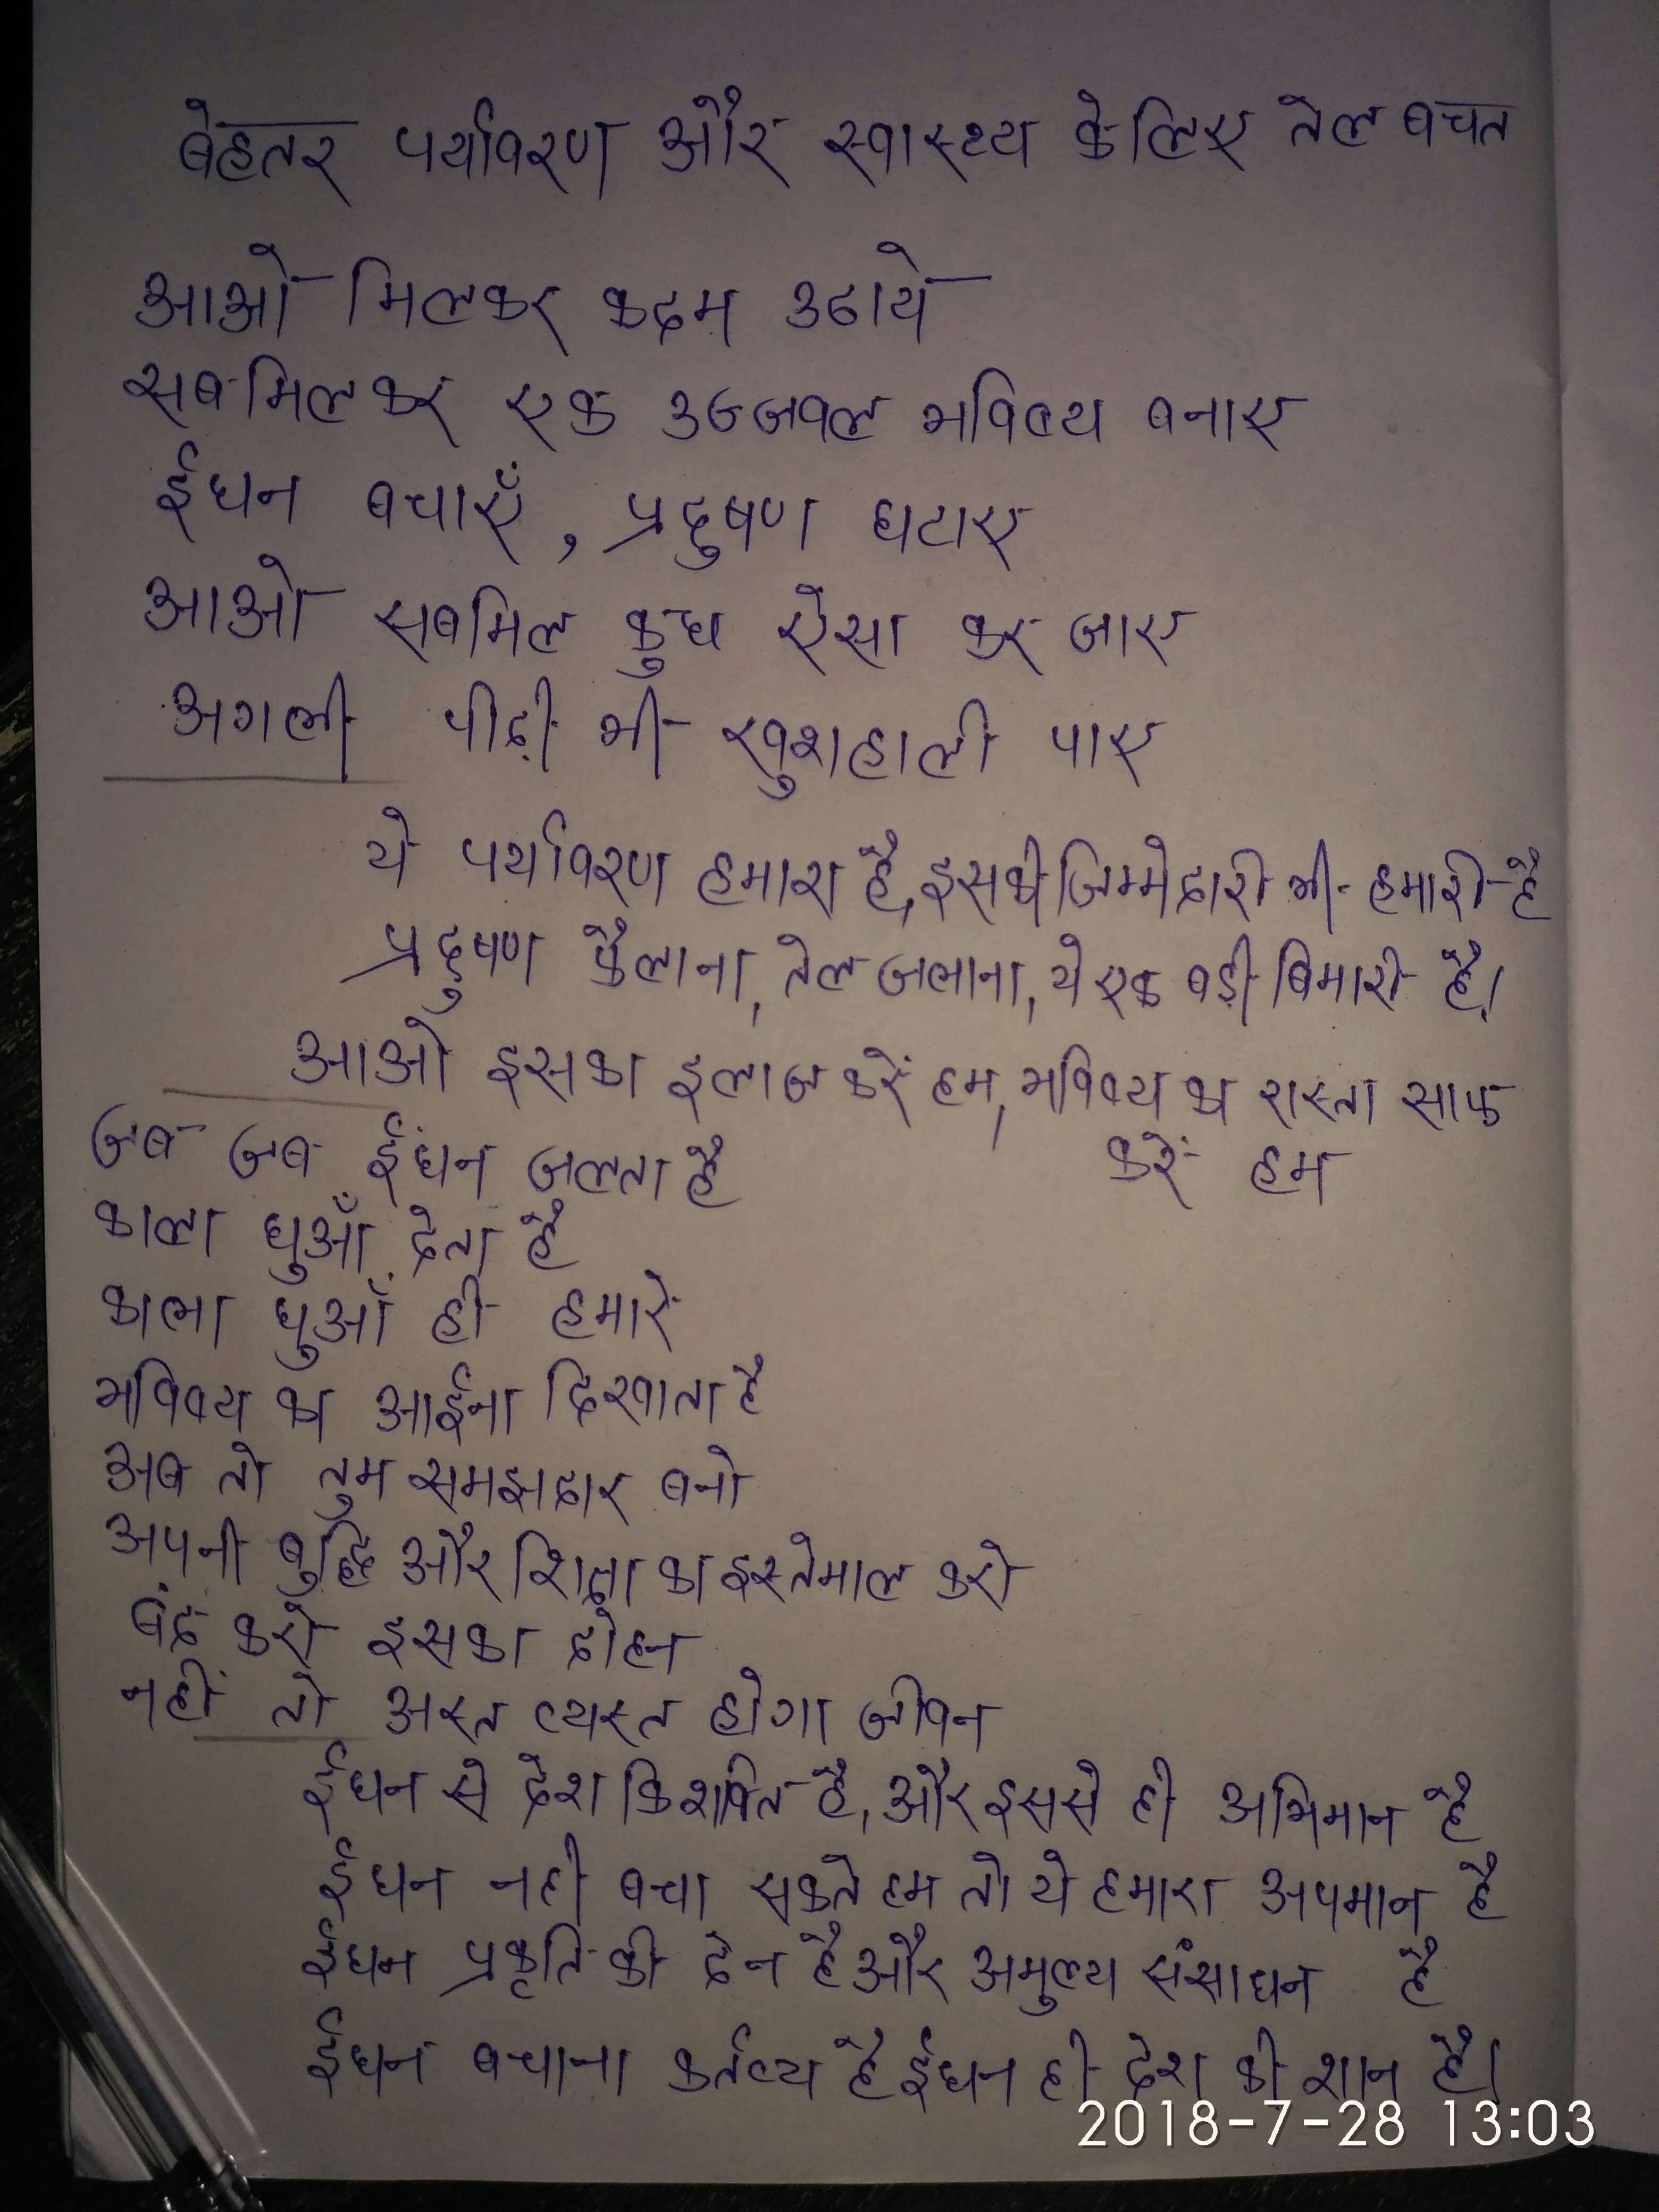 बेहतर पर्यावरण और स्वास्थ्य के लिए तेल बचत
आओ मिलकर कदम उठाये
सब मिलकर एक उज्जवल भविष्य बनाए
ईधन बचाएँ, प्रदुषण घटाए
आओ सब मिल कुछ ऐसा कर जाए
अगली पीढ़ी भी खुशहाली पाए
ये पर्यावरण हमारा है, इसकी जिम्मेदारी भी हमारी है
प्रदुषण फैलाना, तेल जलाना, ये एक बड़ी बिमारी है।
आओ इसका इलाज करें हम, भविष्य का रास्ता साफ
करें हम
जब जब ईंधन जलता है
काला धुआँ देता है
काला धुआँ ही हमारे
भविष्य का आईना दिखाता है
अब तो तुम समझदार बनो
अपनी बुद्धि और शिक्षा का इस्तेमाल करो
बंद करो इसका दोहन
नहीं तो अस्त व्यस्त होगा जीवन
ईधन से देश विकसित है, और इससे ही अभिमान है
ईधन नही बचा सकते हम तो ये हमारा अपमान है
ईधन प्रकृति की देन है और अमुल्य संसाधन है
ईधन बचाना कर्तव्य है ईधन ही देश की शान है।
2018-7-28 13:03